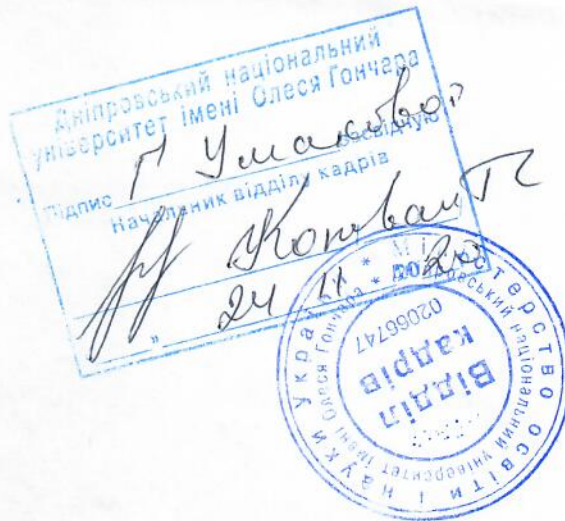 Дніпровський національний
університет імені Олеся Гончара
Підпис Г Уманової засвідчую
Начальник відділу кадрів
24 11 2020
Міністерство освіти і науки України
Дніпровський національний університет імені Олеся Гончара
02066747
Відділ
кадрів